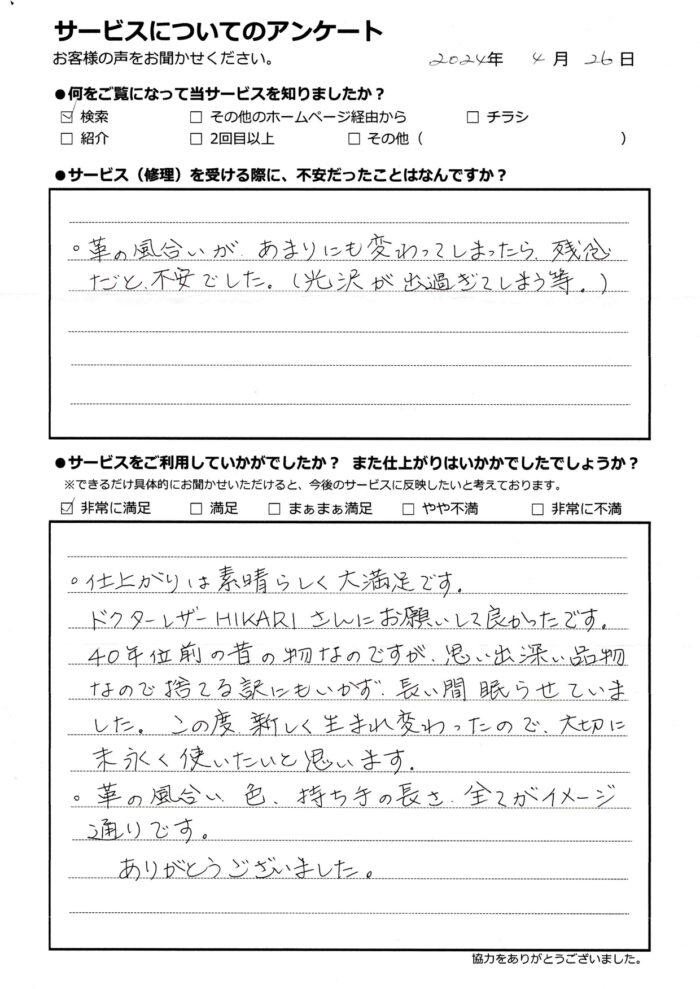 サービスについてのアンケート
お客様の声をお聞かせください。 2024年 4月 26日
●何をご覧になって当サービスを知りましたか？
☑ 検索 □ その他のホームページ経由から □ チラシ
□ 紹介 □ 2回目以上 □ その他（ ）
●サービス（修理）を受ける際に、不安だったことはなんですか？
○革の風合いが、あまりにも変わってしまったら、残念
だと、不安でした。(光沢が出過ぎてしまう等。)
●サービスをご利用していかがでしたか？ また仕上がりはいかかでしたでしょうか？
※できるだけ具体的にお聞かせいただけると、今後のサービスに反映したいと考えております。
☑ 非常に満足 □ 満足 □ まぁまぁ満足 □ やや不満 □ 非常に不満
○仕上がりは素晴らしく大満足です。
ドクターレザーHIKARIさんにお願いして良かったです。
40年位前の昔の物なのですが、思い出深い品物
なので捨てる訳にもいかず、長い間眠らせていま
した。この度、新しく生まれ変わったので、大切に
末永く使いたいと思います。
○革の風合い、色、持ち手の長さ、全てがイメージ
通りです。
ありがとうございました。
協力をありがとうございました。